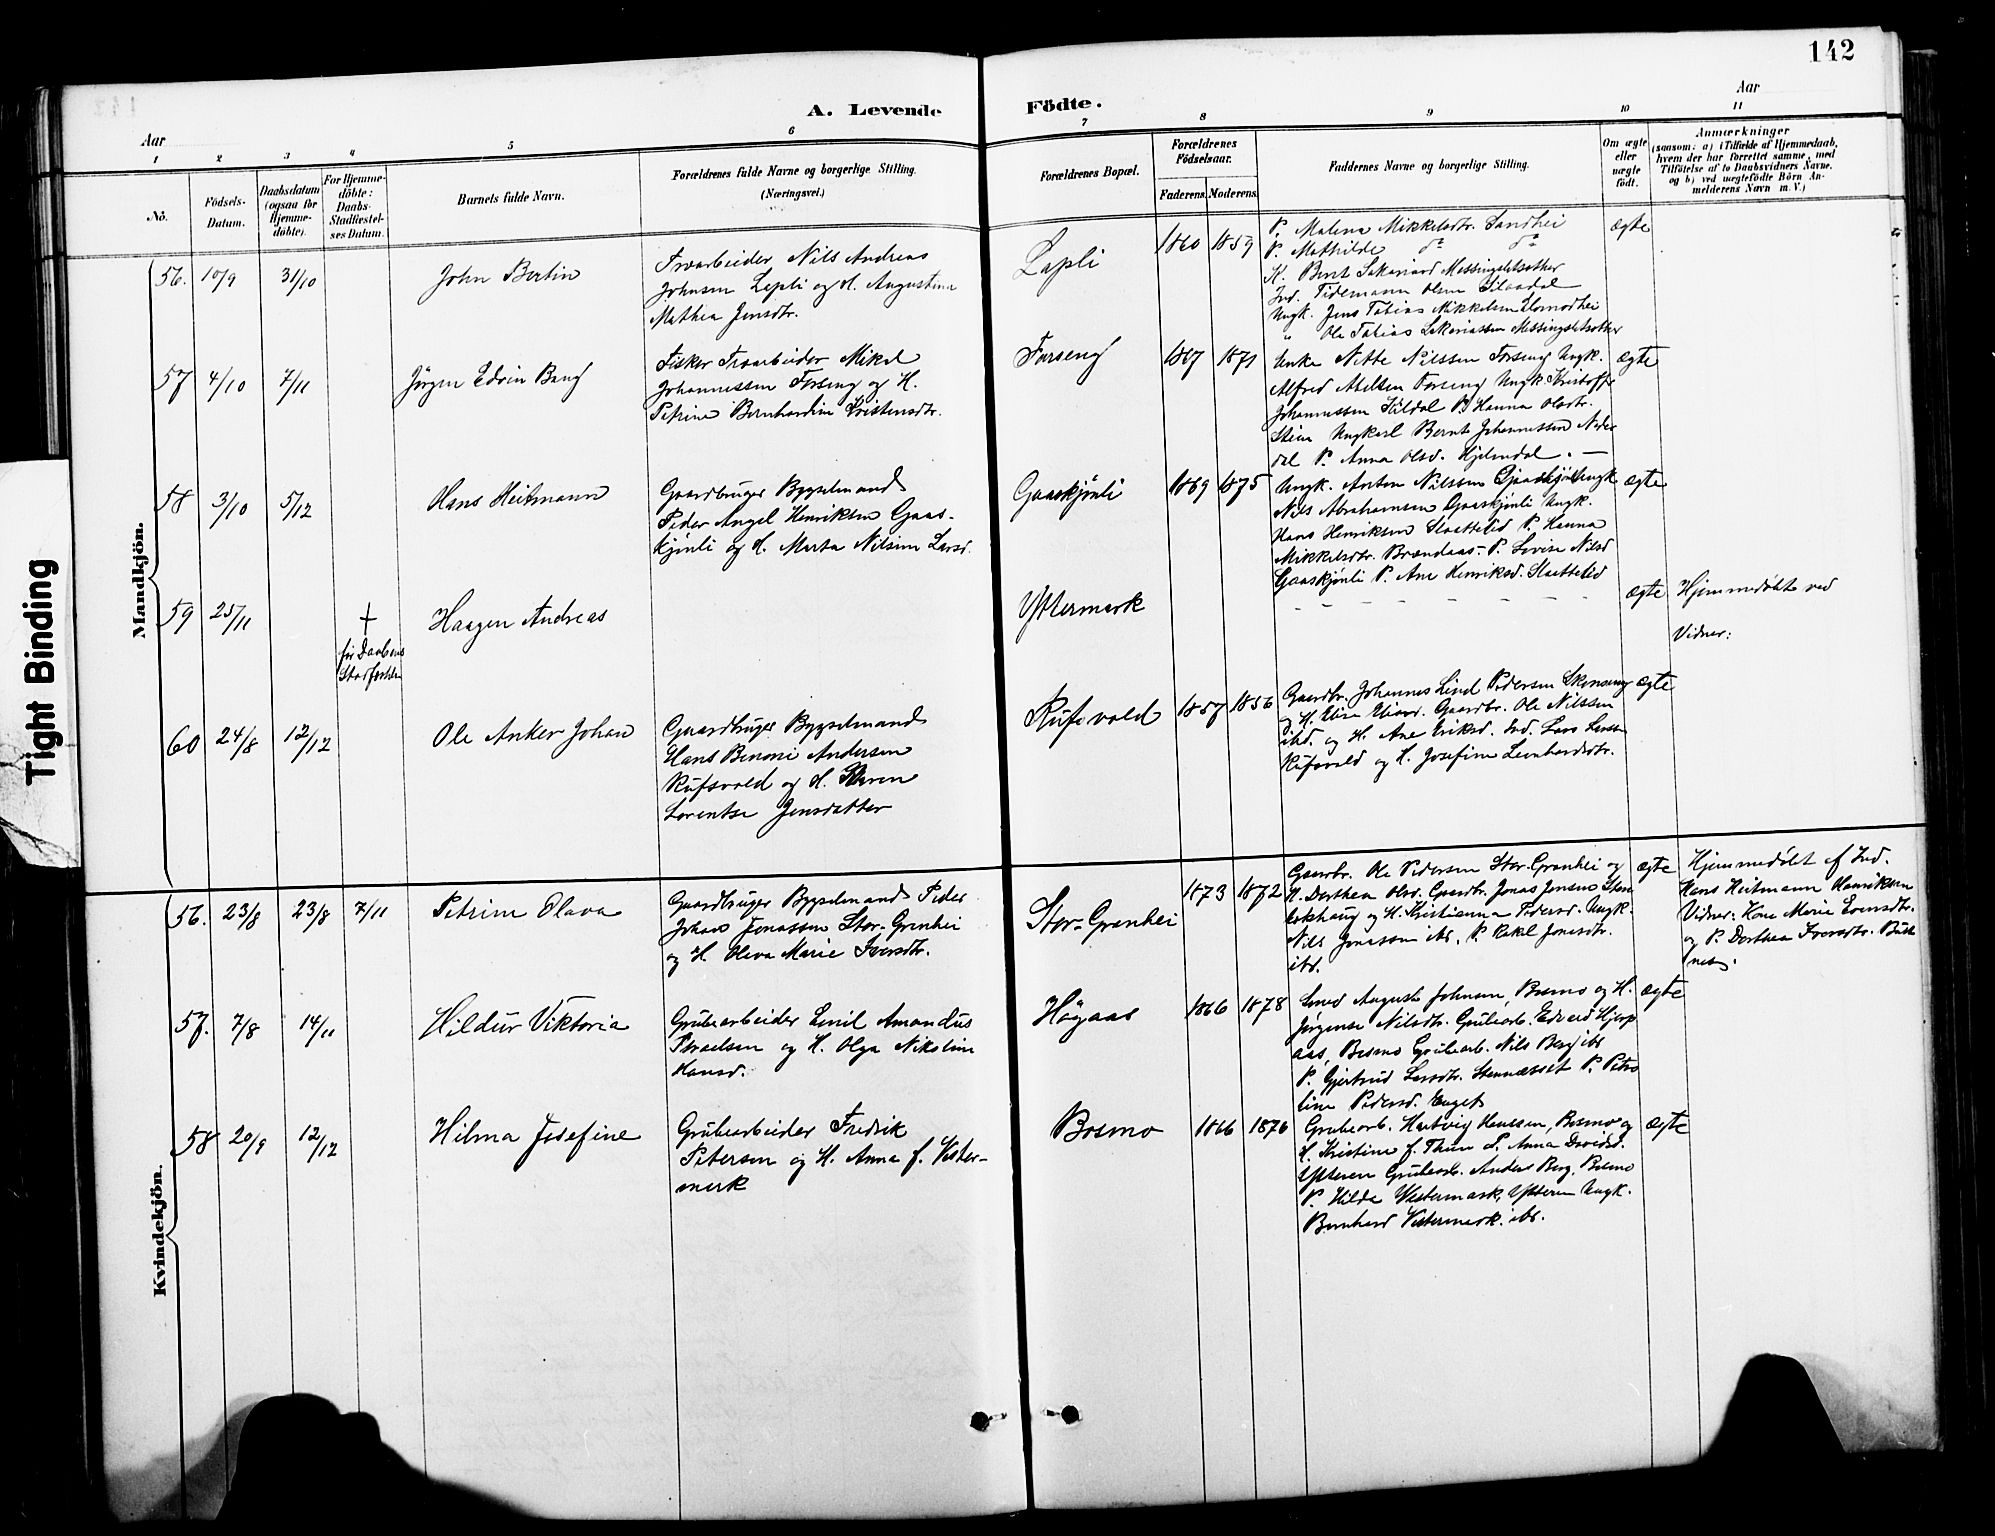 142
A. Levende Födte.
Aar
Aar
1 2 3 4 5 6 7 8 9 10 11
No.
Födsels-Datum.
Daabsdatum (ogsaa for Hjemme-døbte).
For Hjemme-döbte: Daabs-Stadfæstel-ses Datum.
Barnets fulde Navn.
Forældrenes fulde Navne og borgerlige Stilling.
(Næringsvei.)
Forældrenes Bopæl.
Forældrenes Födselsaar.
Faderens. Moderens.
Faddernes Navne og borgerlige Stilling.
Om ægte eller uægte födt.
Anmærkninger
(saasom: a) i Tilfælde af Hjemmedaab,
hvem der har forrettet samme, med
Tilföielse af to Daabsvidners Navne.
og b) ved uægtefödte Börn An-
melderens Navn m. V.)
Tight Binding
Mandkjön.
56. 10/9 31/10 John Bertin
Træarbeider Nils Andreas
Johnsen Lapli og H. Augustina
Mathea Jensdtr.
Lapli 1860 1859
P. Malena Mikkelsdtr. Sandhei
P. Mathilde do do
K. Bent Sakariasd Messingsletsother
Ind. Tidemann Olsen
Ungk. Jens Tobias Mikkelsen
" Ole Tobias Sakariassen Messingsletsother
ægte
57 4/10 7/11 Jörgen Edvin Bang
Fisker Træarbeider Mikal
Johannessen Forseng og H.
Petrine Bernhardine Kristensdtr.
Forseng 1867 1871
Enke Nitte Nilssen Forseng Ungk.
Alfred Axelsen Forseng Ungk. Kristoffer
Johannessen P. Hanna Olsdtr.
Stien Ungkarl Bernt Johannessen Neder
dal P. Anna Olsd. Hjelmdal. —
ægte
58 3/10 5/12 Hans Heitmann
Gaardbruger Bygselmand
Peder Angel Henriksen Gaas-
kjønli og H. Marta Nilsine Larsd.
Gaaskjønli 1869 1875
Ungk. Anton Nilssen Gaaskjønli Ungk
Nils Abrahamsen Gaaskjønli Ungk.
Hans Henriksen Slaettelid P. Hanna
Mikkelsdtr. Brændaas – P. Lovise Nilsd
Gaaskjønli P. Ane Henriksd. Slaettelid
ægte
59 25/11 +
før Daabens
Stadfæstelse
Haagen Andreas
Yttermark
– – – – – – –
ægte
Hjemmedøbt ved
Vidner:
60 24/8 12/12 Ole Anker Johan
Gaardbruger Bygselmand
Hans Benoni Andersen
Rufsvold og H. Karen
Lorentse Jensdatter
Rufsvold 1857 1856
Gaardbr. Johannes Lind Pedersen Skonseng
og H. Gaardbr. Ole Nilssen
ibd. og H. Ane Eriksd. Ind. Lars Larssen
Rufsvold og H. Josefine Leonhardsdtr.
ægte
Kvindekjön.
56. 23/8 23/8 7/11 Petrine Olava
Gaardbruger Bygselmand Peder
Johan Jonassen Stor-Grønhei
og H. Oleva Marie Iversdtr.
Stor-Grønhei 1873 1872
Gaardbr. Ole Pedersen Stor-Grønhei og
H. Dorthea Olsd. Gaardbr. Jonas Jensen Stor
og H. Kristianna Pedersd. Ungk.
Nils Jonassen ibd. P. Rakel Jonasdtr.
ibd.
ægte
Hjemmedøbt af Ind.
Hans Heitmann Henriksen
Vidner: Kone Marie Evensdtr.
og P. Dorthea Iversdtr.
57. 7/8 14/11 Hildur Viktoria
Grubearbeider Emil Amandus
Israelsen og H. Olga Nikoline
Hansd.
Høgaas 1866 1878
Smed August Johnsen, Bosmo og H.
Jørgense Nilsdtr. Grubearb. Edvard Hjerp
aas, Bosmo Grubearb. Nils Berg ibd
P. Gjertrud Larsdtr. Stennæsset P. Petro
line Pedersd. Enget
ægte
58 20/9 12/12 Hilma Josefine
Grubearbeider Fredrik
Petersen og H. Anna f. Vester-
mark
Bosmo 1866 1876
Grubearb. Hartvig Hanssen, Bosmo og
H. Kristine f. Thun P. Anna Davidsd.
Ytteren Grubearb. Anders Berg, Bosmo
P. Hilda Vestermark, Ytteren Ungk.
Bernhard Vestermark ibd.
ægte